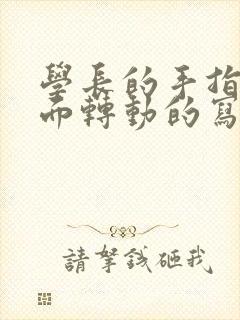 學長的手指
而轉動的寫
請拏錢砸我